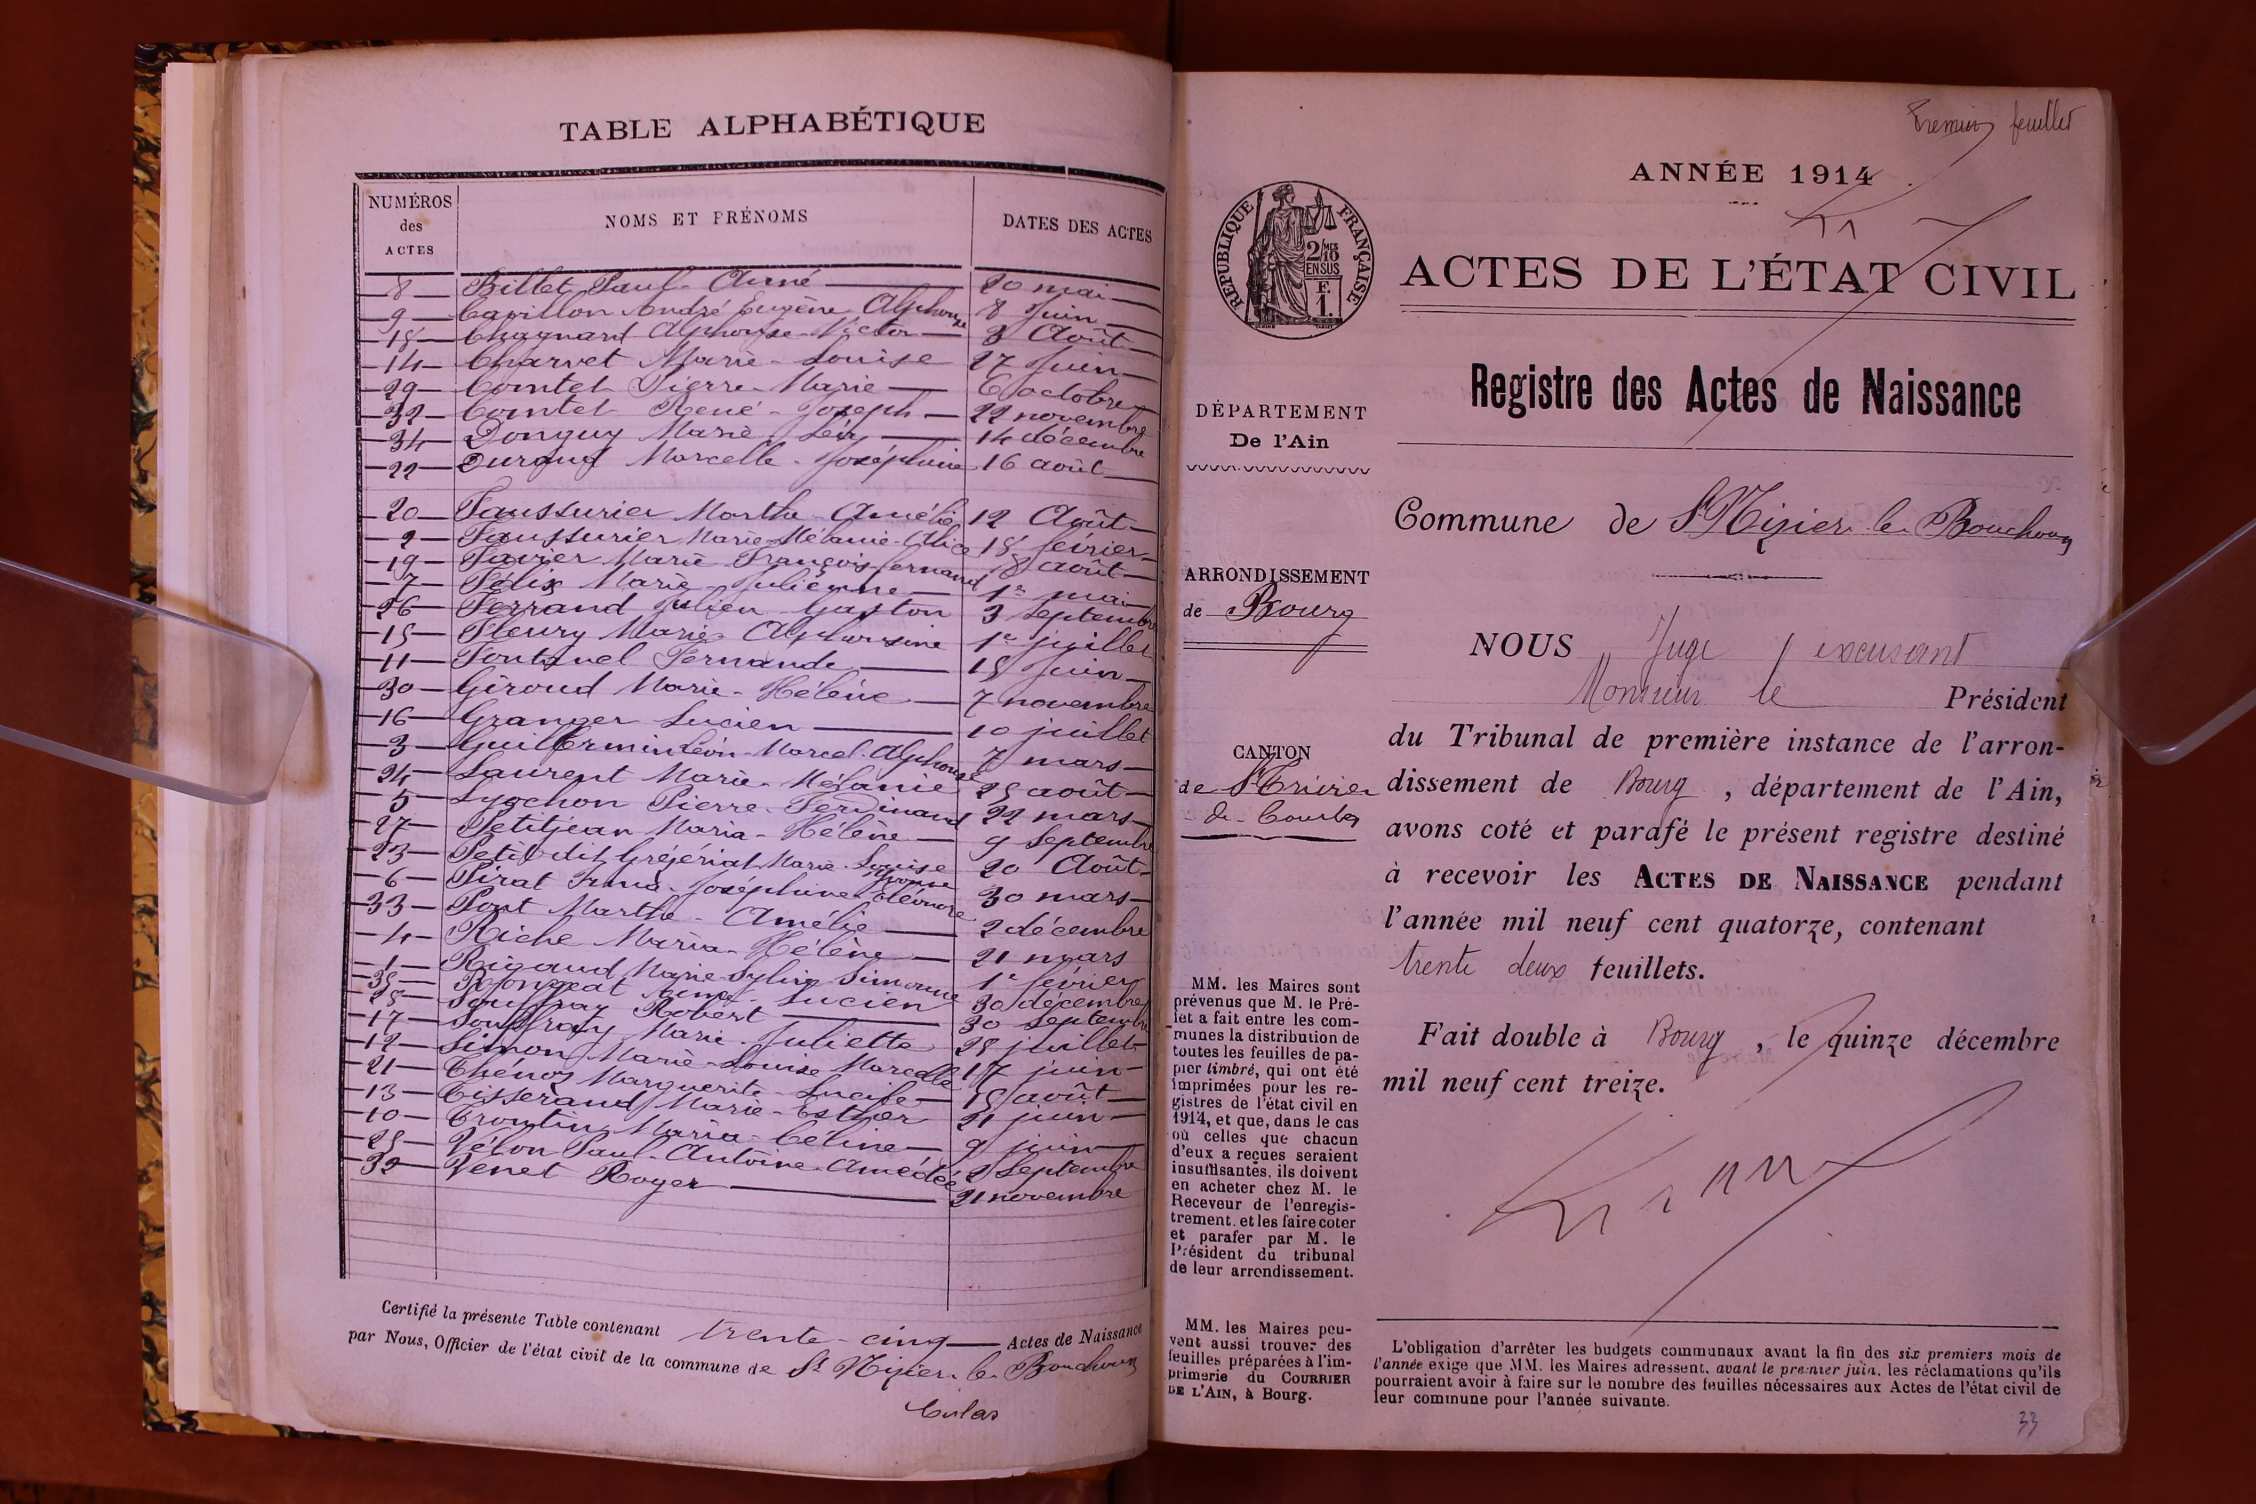 TABLE ALPHABÉTIQUE
NUMÉROS des ACTES NOMS ET PRÉNOMS DATES DES ACTES
8 Billet Paul Aimé 20 mai
9 Cavillon André Eugène Alphonse 8 Juin
18 Chagnard Alphonse Victor 3 Août
14 Charvet Marie-Louise 27 Juin
29 Comtet Pierre-Marie 6 octobre
32 Comtet René-Joseph 22 novembre
34 Donguy Marie Léa 14 décembre
22 Durand Marcelle-Joséphine 16 août
20 Faussurier Marthe-Amélie 12 Août
2 Faussurier Marie-Mélanie-Alice 15 février
19 Favier Marie François Fernand 8 août
7 Félix Marie-Julienne 1er mai
26 Ferrand Julien-Gaston 3 septembre
15 Fleury Marie Alphonsine 1er juillet
11 Fontanel Fernande 15 Juin
30 Giroud Marie-Hélène 7 novembre
16 Granger Lucien 10 juillet
3 Guillermin Léon-Marcel-Alphonse 7 mars
24 Laurent Marie-Mélanie 25 août
5 Lyochon Pierre-Ferdinand 22 mars
27 Petitjean Maria-Hélène 9 Septembre
23 Petit dit Gréjériat Marie-Louise Yvonne 20 Août
6 Pirat Irma-Joséphine-Eléonore 30 mars
33 Pont Marthe-Amélie 2 décembre
4 Riche Maria-Hélène 21 mars
1 Rigaud Marie-Sylvie Simonne 1er février
35 Rongeat Aimé-Lucien 30 décembre
28 Souffray Robert 30 Septembre
17 Souffray Marie-Juliette 25 juillet
12 Simon Marie-Louise Marcelle 17 juin
21 Thénoz Marguerite-Lucile 15 août
13 Tisserand Marie-Esther 21 juin
10 Trontin Maria-Céline 9 juin
25 Vélon Paul-Antoine-Amédée 2 Septembre
32 Venet Roger 21 novembre
Certifié la présente Table contenant trente-cinq Actes de Naissance
par Nous, Officier de l'état civil de la commune de St Nizier-le-Bouchoux
Premier feuillet
ANNÉE 1914
RÉPUBLIQUE FRANÇAISE
2/10 MES EN SUS
F. 1.
ACTES DE L'ÉTAT CIVIL
Registre des Actes de Naissance
DÉPARTEMENT
De l'Ain
Commune de St Nizier-le-Bouchoux
ARRONDISSEMENT
de Bourg
CANTON
de St Trivier
de-Courtes
NOUS Juge excusant
Monsieur le Président
du Tribunal de première instance de l'arron-
dissement de Bourg, département de l'Ain,
avons coté et parafé le présent registre destiné
à recevoir les ACTES DE NAISSANCE pendant
l'année mil neuf cent quatorze, contenant
trente deux feuillets.
Fait double à Bourg, le quinze décembre
mil neuf cent treize.
MM. les Maires sont
prévenus que M. le Pré-
fet a fait entre les com-
munes la distribution de
toutes les feuilles de pa-
pier timbré, qui ont été
imprimées pour les re-
gistres de l'état civil en
1914, et que, dans le cas
où celles que chacun
d'eux a reçues seraient
insuffisantes, ils doivent
en acheter chez M. le
Receveur de l'enregis-
trement, et les faire coter
et parafer par M. le
Président du tribunal
de leur arrondissement.
MM. les Maires peu-
vent aussi trouver des
feuilles préparées à l'im-
primerie du COURRIER
DE L'AIN, à Bourg.
L'obligation d'arrêter les budgets communaux avant la fin des six premiers mois de
l'année exige que MM. les Maires adressent, avant le premier juin, les réclamations qu'ils
pourraient avoir à faire sur le nombre des feuilles nécessaires aux Actes de l'état civil de
leur commune pour l'année suivante.
33